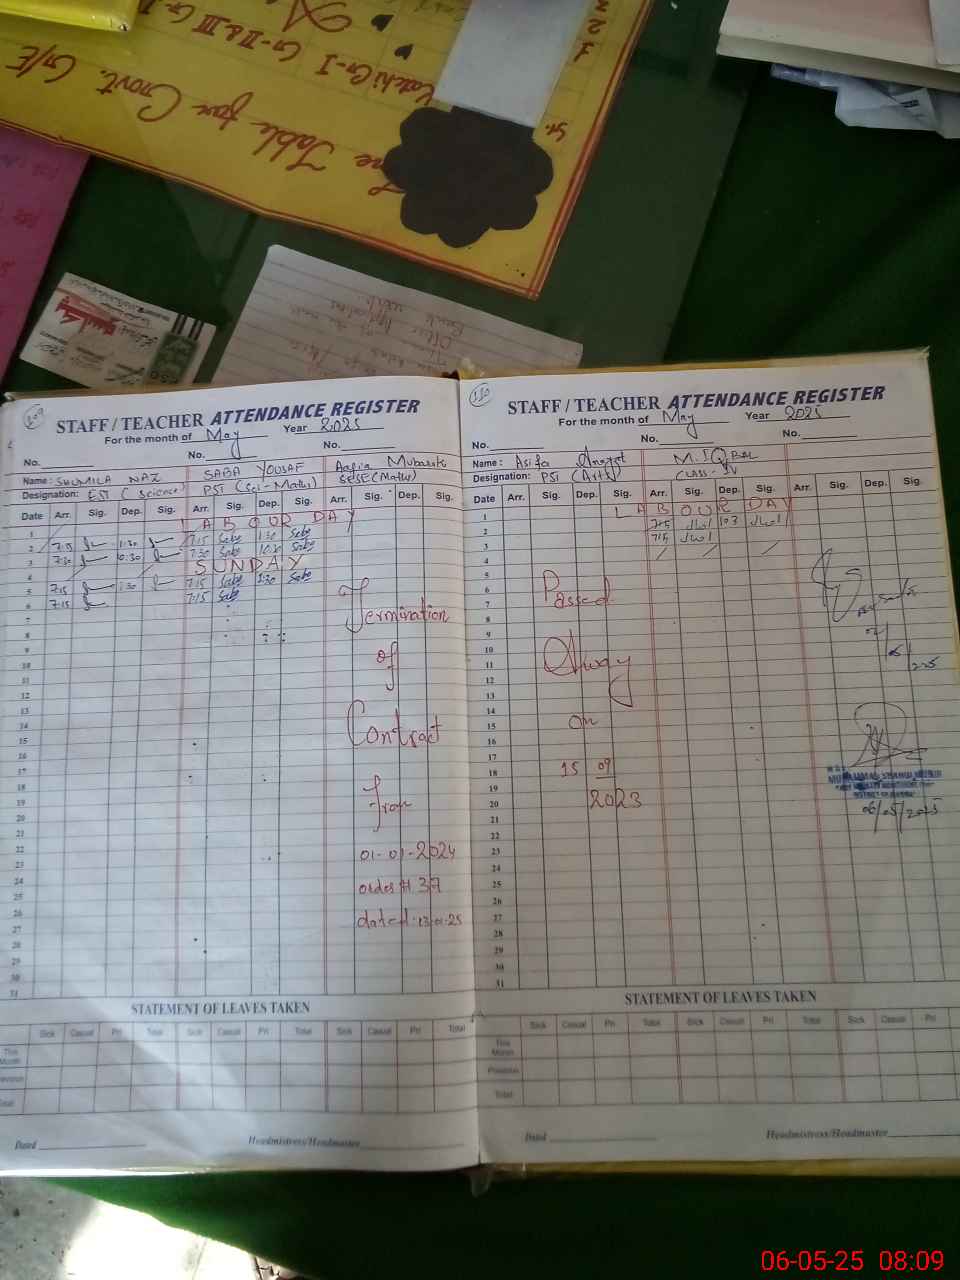 Time Table for Govt. G/E
Sr.
1
2
Katchi G-I G-II & III
109
STAFF / TEACHER ATTENDANCE REGISTER
For the month of May Year 2025
No. No. No.
Name: SHUMILA NAZ SABA YOUSAF Aafia Mubarak
Designation: EST (Science) PST (Sci-Maths) SESE (Maths)
Date Arr. Sig. Dep. Sig. Arr. Sig. Dep. Sig. Arr. Sig. Dep. Sig.
1 LABOUR DAY
2 7:15 1:30 7:15 Saba 1:30 Saba
3 7:30 10:30 7:30 Saba 10:30 Saba
4 SUNDAY
5 7:15 1:30 7:15 Saba 1:30 Saba
6 7:15 7:15 Saba
7
8
9
10
11
12
13
14
15
16
17
18
19
20
21
22
23
24
25
26
27
28
29
30
31
Termination
of
Contract
from
01-01-2024
order # 37
dated: 13-01-25
STATEMENT OF LEAVES TAKEN
Sick Casual Pri Total Sick Casual Pri Total Sick Casual Pri Total
This Month
Previous
Total
Dated Headmistress/Headmaster
110
STAFF / TEACHER ATTENDANCE REGISTER
For the month of May Year 2025
No. No. No.
Name: Asifa M. IQBAL
Designation: PST (Arts) CLASS-IV
Date Arr. Sig. Dep. Sig. Arr. Sig. Dep. Sig. Arr. Sig. Dep. Sig.
1 LABOUR DAY
2 7:15
3 7:15
4
5
6
7
8
9
10
11
12
13
14
15
16
17
18
19
20
21
22
23
24
25
26
27
28
29
30
31
Passed
Away
on
15 09
2023
06/05/2025
STATEMENT OF LEAVES TAKEN
Sick Casual Pri Total Sick Casual Pri Total Sick Casual Pri Total
This Month
Previous
Total
Dated Headmistress/Headmaster
06-05-25 08:09